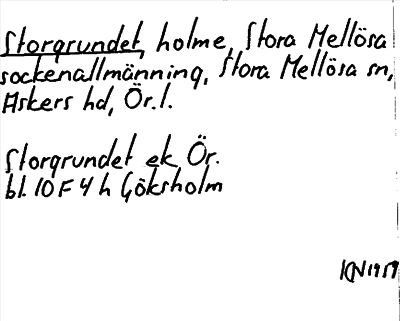 Storgrundet, holme, Stora Mellösa
sockenallmänning, Stora Mellösa sn,
Askers hd, Ör. l.
Storgrundet ek Ör.
bl. 10 F 4 h Göksholm
KN 1959